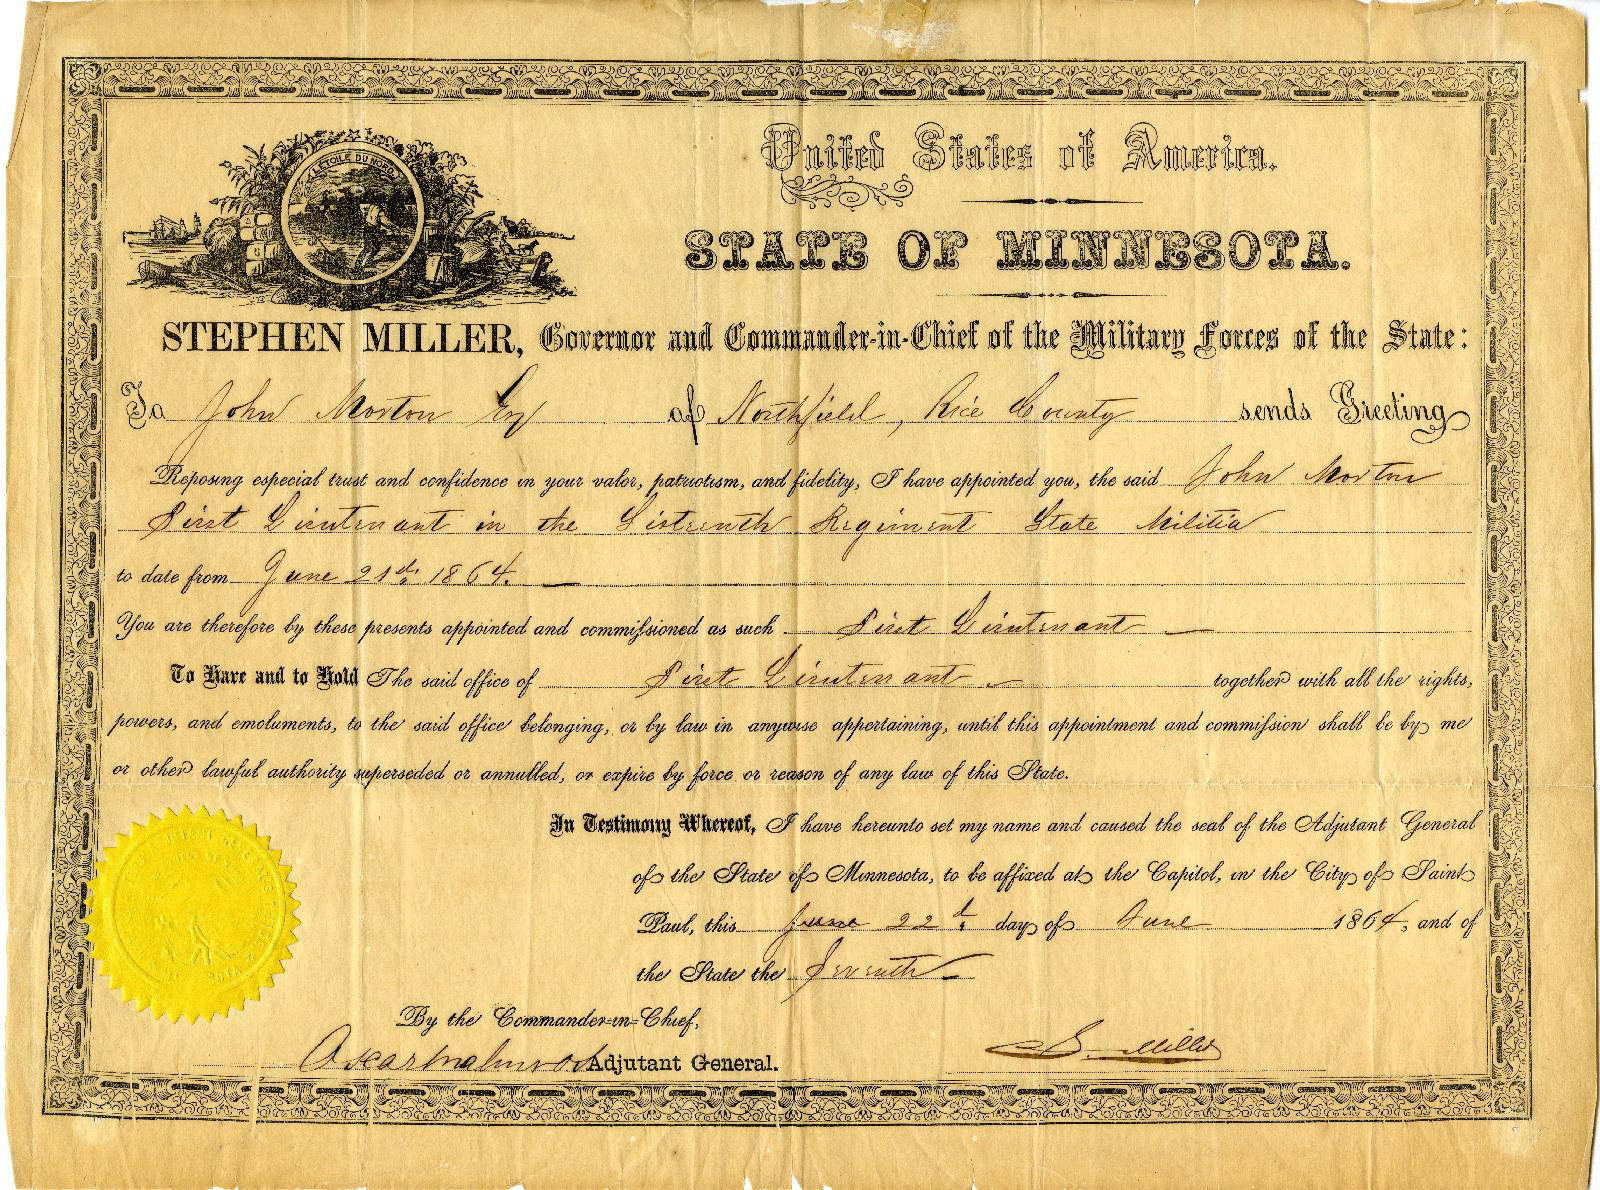 L'ETOILE DU NORD
United States of America.
STATE OF MINNESOTA.
STEPHEN MILLER, Governor and Commander-in-Chief of the Military Forces of the State:
To John Morton Esq of Northfield, Rice County sends Greeting
Reposing especial trust and confidence in your valor, patriotism, and fidelity, I have appointed you, the said John Morton
First Lieutenant in the Sixteenth Regiment State Militia
to date from June 21st, 1864.
You are therefore by these presents appointed and commissioned as such First Lieutenant
To Have and to Hold The said office of First Lieutenant together with all the rights,
powers, and emoluments, to the said office belonging, or by law in anywise appertaining, until this appointment and commission shall be by me
or other lawful authority superseded or annulled, or expire by force or reason of any law of this State.
In Testimony Whereof, I have hereunto set my name and caused the seal of the Adjutant General
of the State of Minnesota, to be affixed at the Capitol, in the City of Saint
Paul, this June 22d day of June 1864, and of
the State the Seventh
By the Commander-in-Chief,
Oscar Malmros Adjutant General.
S. Miller